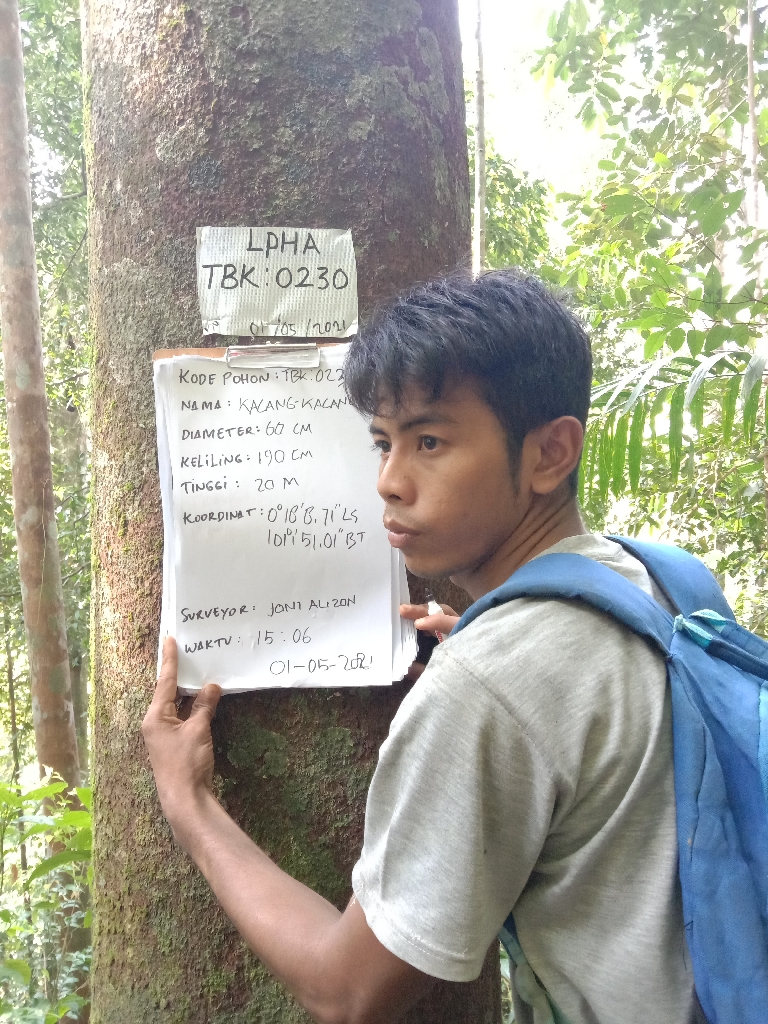 LPHA
TBK:0230
01/05/2021
KODE POHON: TBK:023
NAMA: KACANG-KACAN
DIAMETER: 60 CM
KELILING: 190 CM
TINGGI: 20 M
KOORDINAT: 0°18'8,71" LS
101°1'51,01" BT
SURVEYOR: JONI ALIZON
WAKTU: 15:06
01-05-2021